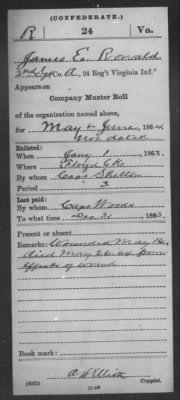 (CONFEDERATE.)
R 24 Va.
James E. Ronald
2nd Sgt Co. A, 24 Reg't Virginia Inf.*
Appears on
Company Muster Roll
of the organization named above,
for May & June, 1864.
not dated
Enlisted:
When Jany 1, 1863.
Where Floyd C.H.
By whom Capt. Shelton
Period 3
Last paid:
By whom Capt. Woods
To what time Dec. 31, 1863.
Present or absent
Remarks: Wounded May 16,
died May 26, 64 from
effects of wound.
Book mark:
(642)
A W Elliott
Copyist.